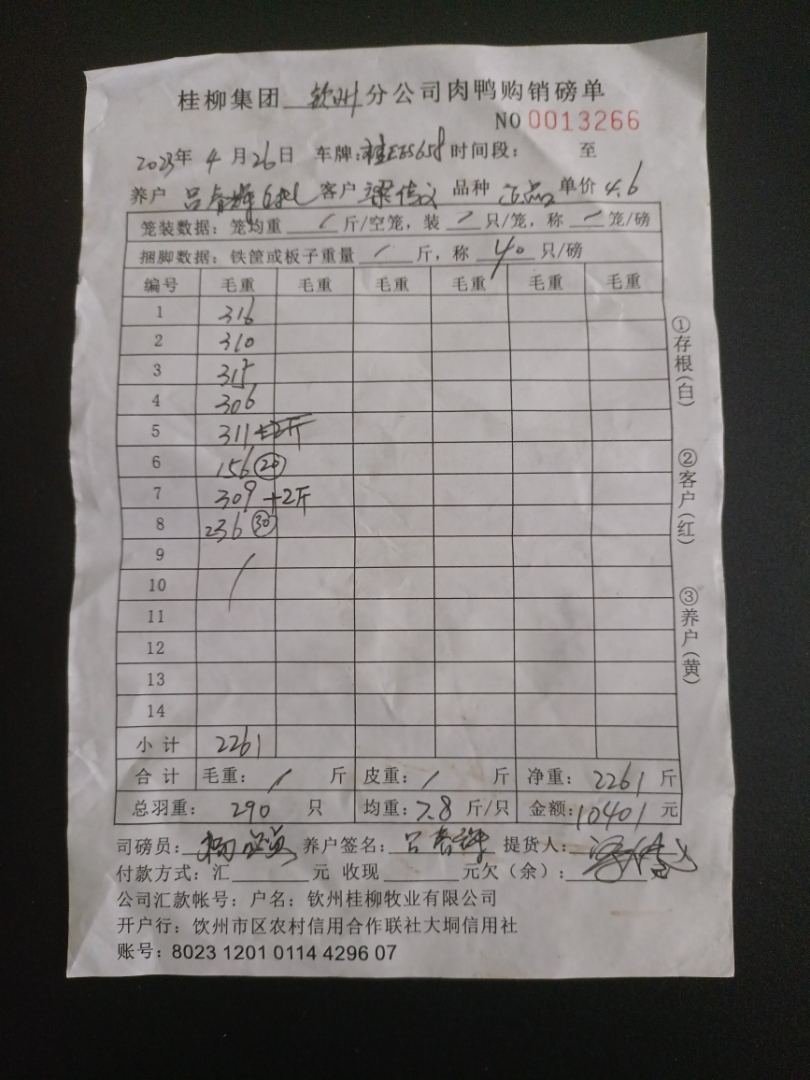 桂柳集团 钦州 分公司肉鸭购销磅单
NO 0013266
2023年 4 月 26 日 车牌:桂E85658 时间段: 至
养户 吕春辉 客户 梁信义 品种 正品 单价 4.6
笼装数据: 笼均重 / 斤/空笼, 装 / 只/笼, 称 / 笼/磅
捆脚数据: 铁筐或板子重量 / 斤, 称 40 只/磅
编号 毛重 毛重 毛重 毛重 毛重 毛重
1 316
2 310
3 315
4 306
5 311 +2斤
6 156 (20)
7 309 +2斤
8 236 (30)
9 /
10
11
12
13
14
小计 2261
合计 毛重: / 斤 皮重: / 斤 净重: 2261 斤
总羽重: 290 只 均重: 7.8 斤/只 金额: 10401 元
司磅员: 养户签名: 吕春辉 提货人:
付款方式: 汇 元 收现 元欠(余):
公司汇款帐号: 户名: 钦州桂柳牧业有限公司
开户行: 钦州市区农村信用合作联社大垌信用社
账号: 8023 1201 0114 4296 07
①存根(白)
②客户(红)
③养户(黄)